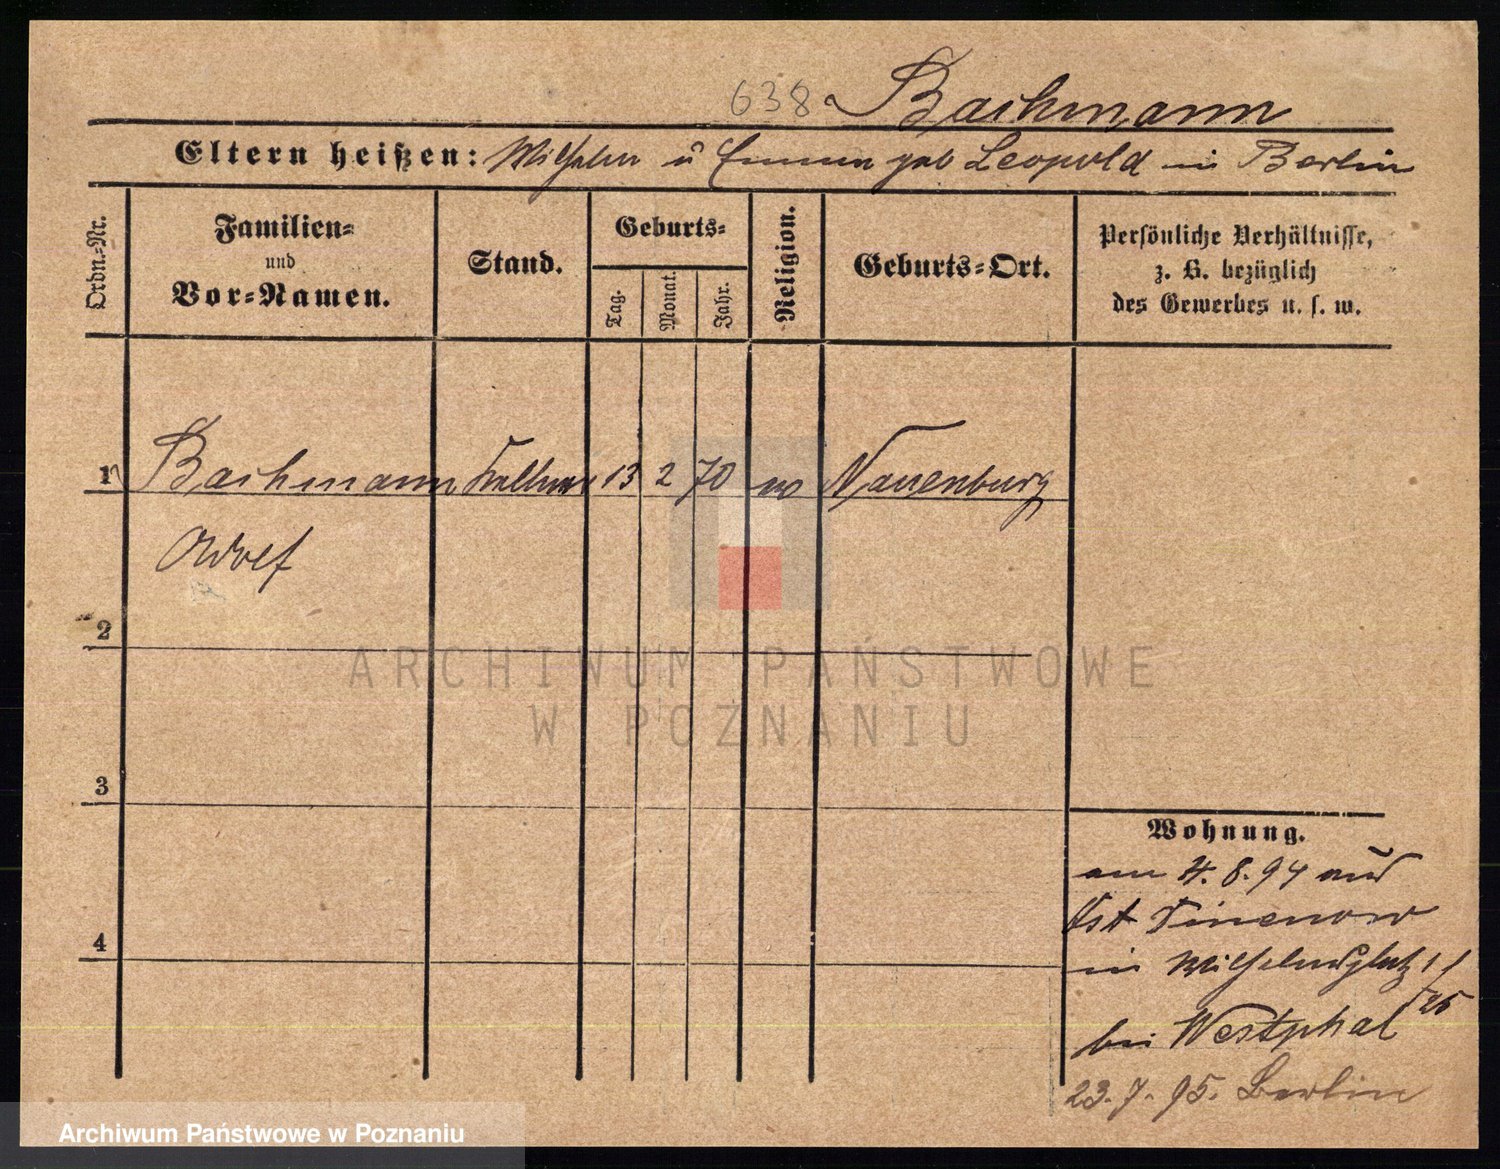 638 Bachmann
Eltern heißen: Wilhelm u Emma geb Leopold in Berlin
Ordn.-Nr.
Familien-
und
Vor-Namen.
Stand.
Geburts-
Tag.
Monat.
Jahr.
Religion.
Geburts-Ort.
Persönliche Verhältnisse,
z. B. bezüglich
des Gewerbes u. s. w.
1 Bachmann Kellner 13 2 70 ev Nauenburg
Adolf
2
3
4
Wohnung.
am 4. 8. 94 aus
in Wilhelmsplatz 1/
bei Westphal
23. 7. 95. Berlin
ARCHIWUM PAŃSTWOWE
W POZNANIU
Archiwum Państwowe w Poznaniu